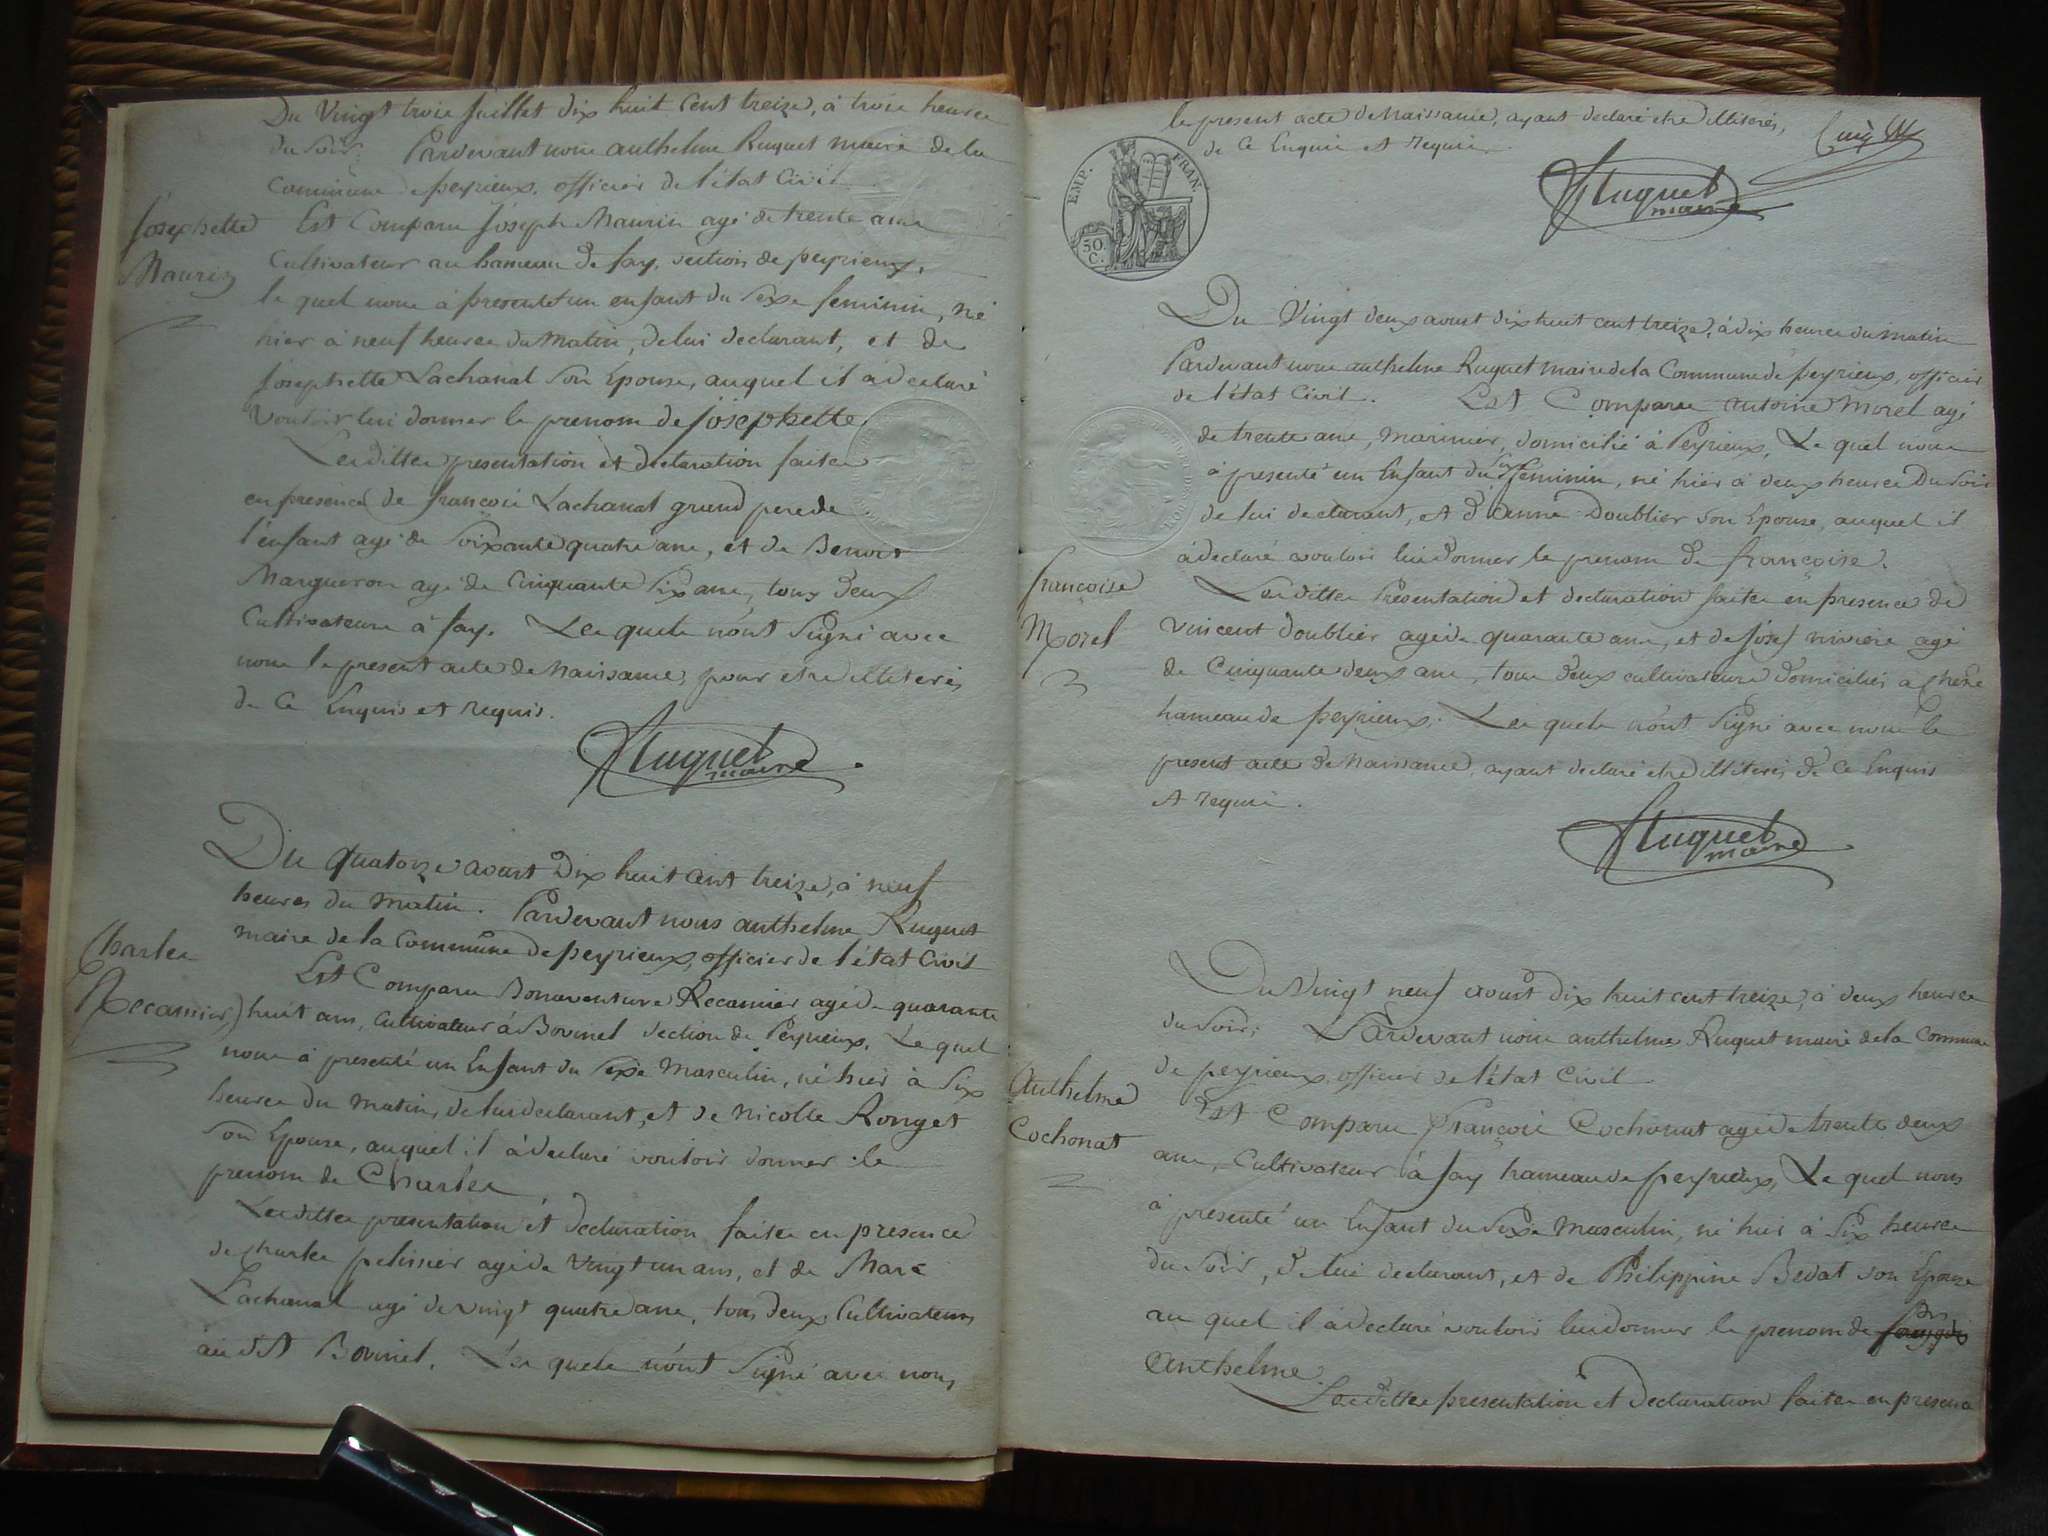 Du Vingt trois Juillet dix huit cent treize, à trois heures
du Soir. Pardevant nous anthelme Ruguet maire de la
Commune de peyrieux, officier de l'état Civil
Josephette
Maurin
Est Comparu Joseph Maurin agé de trente ans
Cultivateur au hameau de fay, section de peyrieux.
le quel nous à presenté un enfant du Sexe feminin, né
hier à neuf heures du Matin, de lui declarant, et de
Josephette Lachanal Son Epouse, auquel il à declaré
vouloir lui donner le prenom de josephette
Lesdittes presentation et declaration faites
en presence de françois Lachanal grand pere de
l'enfant agé de Soixante quatre ans, et de Benoit
Margueron agé de Cinquante Six ans, tous deux
Cultivateurs à fay. Les quels n'ont Signé avec
nous le present acte de Naissance, pour etre illiterés
de Ce Enquis et requis.
Ruguet
maire
Du quatorze aoust Dix huit cent treize, à neuf
heures du matin. Pardevant nous anthelme Ruguet
maire de la Commune de peyrieux, officier de l'état Civil
Charles
Recamier
Est Comparu Bonaventure Recamier agé de quarante
huit ans, Cultivateur à Bovinel section de Peyrieux. Le quel
nous à presenté un Enfant du Sexe Masculin, né hier à Six
heures du matin, de lui declarant, et de Nicolle Ronget
Son Epouse, auquel il à declaré vouloir donner le
prenom de Charles.
Lesdittes presentation et declaration faites en presence
de Charles pelissier agé de Vingt un ans, et de Marc
Lachanal agé de vingt quatre ans, tous deux Cultivateurs
au dit Bovinel. Les quels n'ont Signé avec nous
le present acte de Naissance, ayant declaré etre illiterés,
de Ce Enquis et requis.
Ruguet
maire
EMP. FRAN.
50.
C.
Du Vingt deux aoust dix huit cent treize, à dix heures du matin
Pardevant nous anthelme Ruguet maire de la Commune de peyrieux, officier
de l'état Civil. Est Comparu antoine Morel agé
de trente ans, marinier, domicilié à Peyrieux, Le quel nous
à presenté un Enfant du Sexe feminin, né hier à deux heures Du Soir
de lui declarant, et d'anne Doublier Son Epouse, auquel il
à declaré vouloir lui donner le prenom de françoise.
françoise
Morel
Lesdittes Presentation et declaration faites en presence de
Vincent doublier agé de quarante ans, et de josef riviere agé
de Cinquante deux ans, tous deux cultivateurs domiciliés a
hameau de peyrieux. Les quels n'ont Signé avec nous le
present acte de Naissance, ayant declaré etre illiterés de Ce Enquis
et requis.
Ruguet
maire
Du Vingt neuf aoust dix huit cent treize, à deux heures
du Soir; Pardevant nous anthelme Ruguet maire de la Commune
de peyrieux officier de l'état Civil.
Anthelme
Cochonat
Est Comparu François Cochonat agé de trente deux
ans, Cultivateur à fay hameau de peyrieux, Le quel nous
à presenté un Enfant du Sexe Masculin, né hier à Six heures
du Soir, de lui declarant, et de Philippine Bedat son Epouse
au quel il à declaré vouloir lui donner le prenom de
Anthelme.
Lesdittes presentation et declaration faites en presence